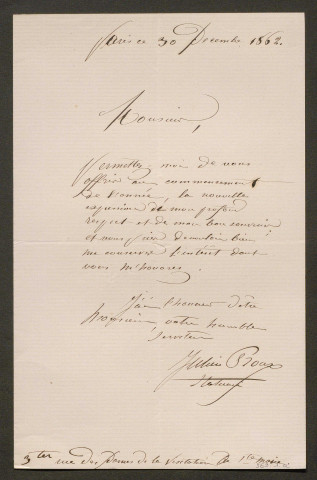 Paris ce 30 Decembre 1862.
Monsieur,
Permettez moi de vous
offrir au commencement
de l'année, la nouvelle
expression de mon profond
respect et de mon bon souvenir
et vous prier de vouloir bien
me conserver l'intérêt dont
vous m'honorez.
J'ai l'honneur d'être
Monsieur, votre humble
serviteur
Julien
3 ter rue des Dames de la Visitation Ste Marie